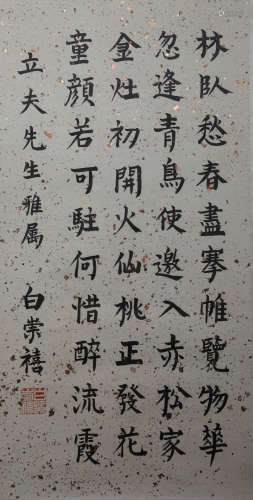 林臥愁春盡搴帷覽物華
忽逢青鳥使邀入赤松家
金灶初開火仙桃正發花
童顔若可駐何惜醉流霞
立夫先生雅属 白崇禧